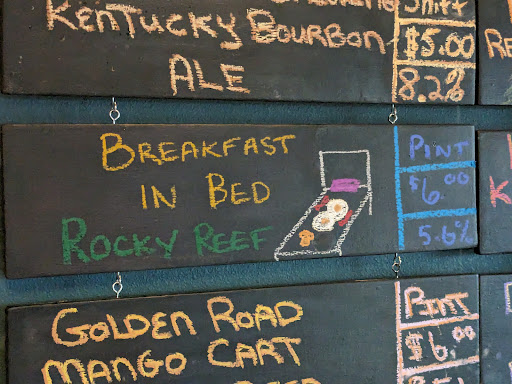 Shift
KENTUCKY BOURBON
ALE
$5.00
8.2%
BREAKFAST
IN BED
ROCKY REEF
PINT
$6.00
5.6%
GOLDEN ROAD
MANGO CART
PINT
$6.00